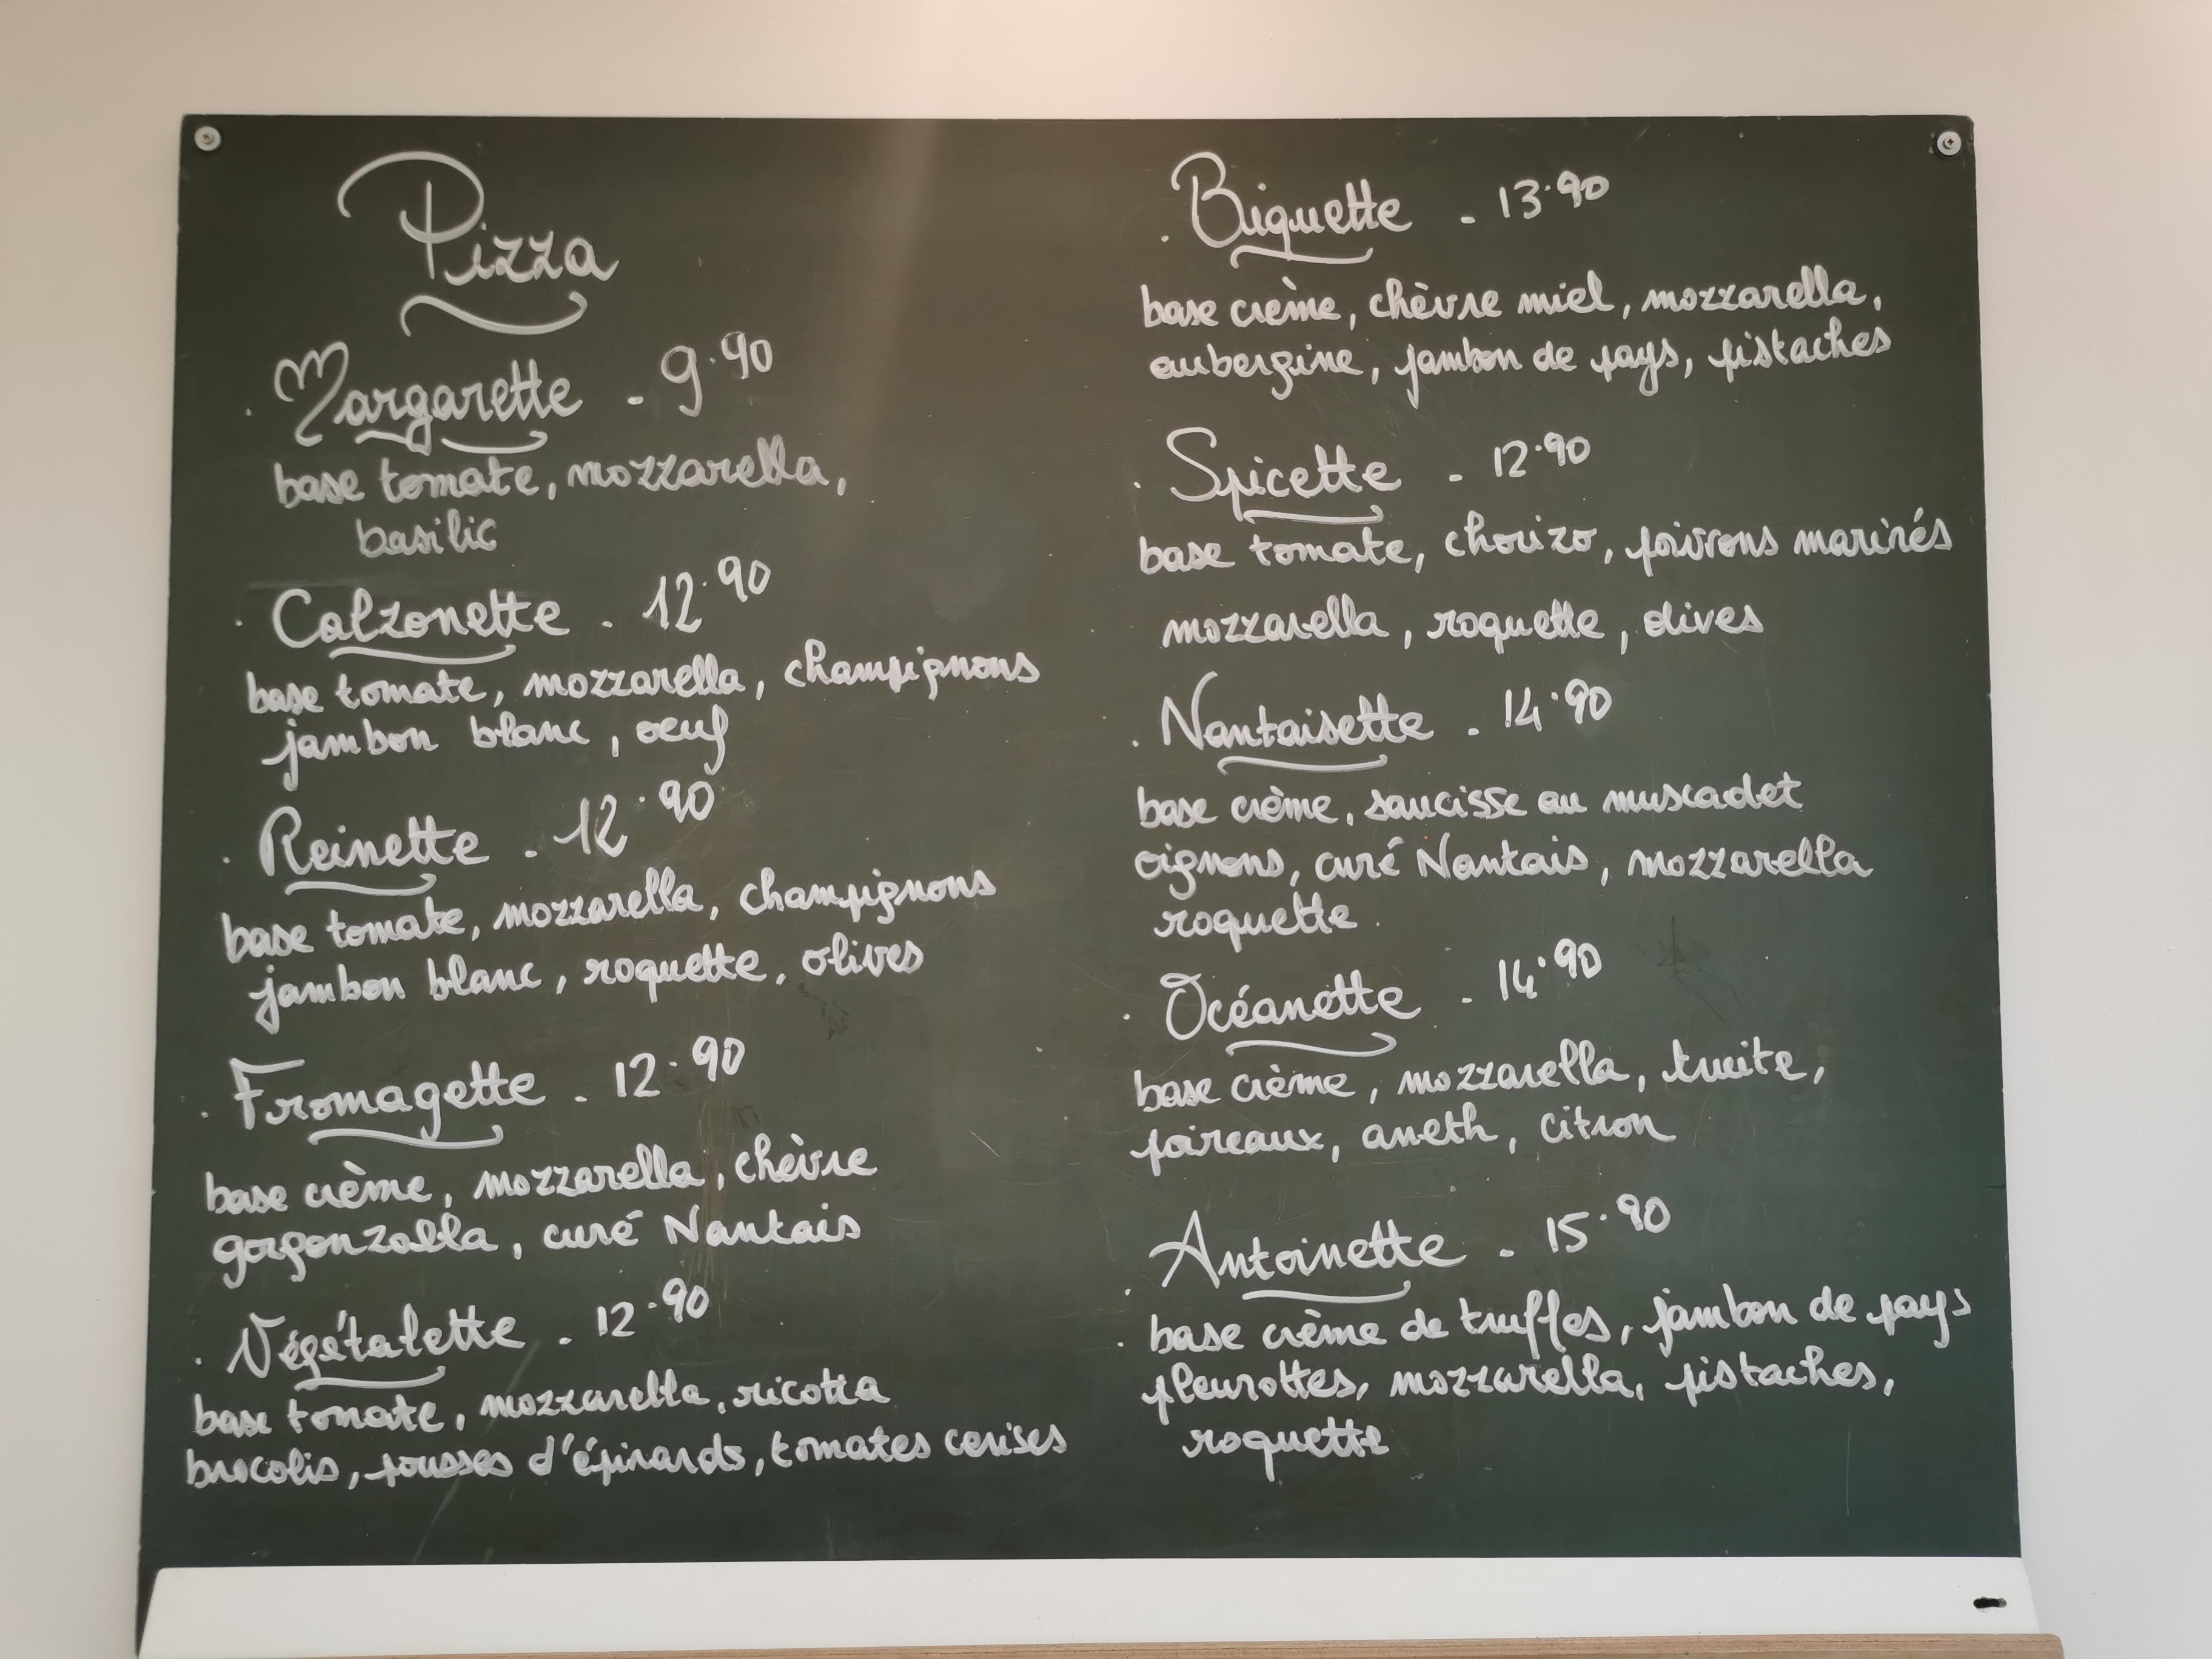 Pizza
. Margarette - 9.90
base tomate, mozzarella,
basilic
. Calzonette - 12.90
base tomate, mozzarella, champignons
jambon blanc, oeuf
. Reinette - 12.90
base tomate, mozzarella, champignons
jambon blanc, roquette, olives
. Fromagette - 12.90
base crème, mozzarella, chèvre
gorgonzolla, curé Nantais
. Végétalette - 12.90
base tomate, mozzarella, ricotta
brocolis, pousses d'épinards, tomates cerises
. Biquette - 13.90
base crème, chèvre miel, mozzarella,
aubergine, jambon de pays, pistaches
. Spicette - 12.90
base tomate, chorizo, poivrons marinés
mozzarella, roquette, olives
. Nantaisette - 14.90
base crème, saucisse au muscadet
oignons, curé Nantais, mozzarella
roquette.
. Océanette - 14.90
base crème, mozzarella, truite,
poireaux, aneth, citron
. Antoinette - 15.90
. base crème de truffes, jambon de pays
pleurottes, mozzarella, pistaches,
roquette